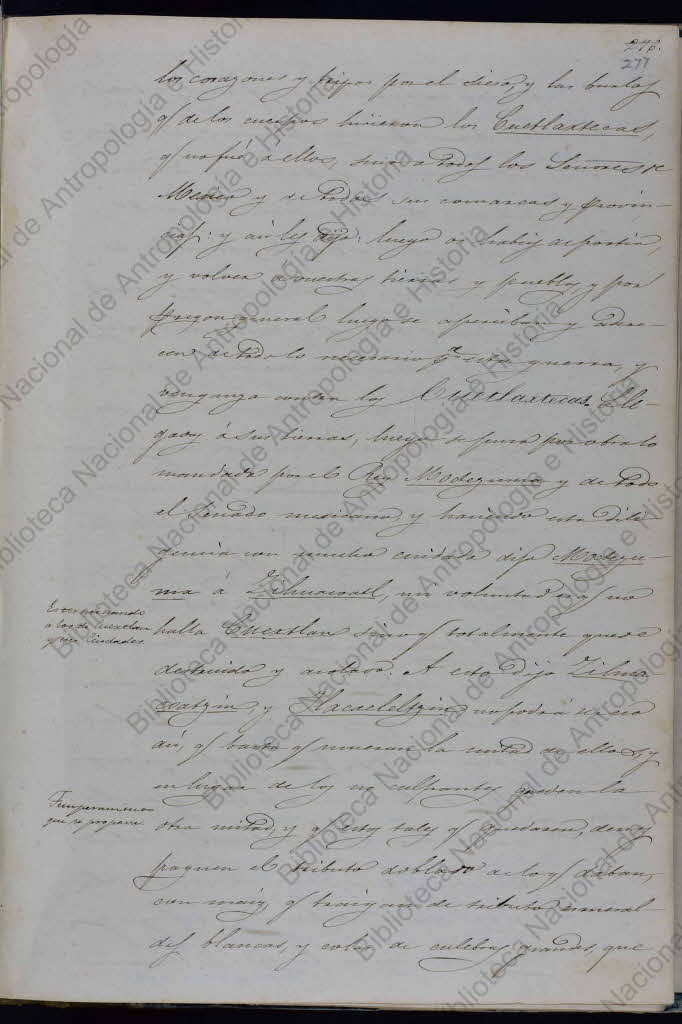 276.
277
los corazones y tripas por el sieso, y las burlas
q.e de los cuerpos hicieron los Cuetlaxtecas,
q.e no fué a ellos, sino a todos los Señores de
Mexico y de todas sus comarcas y Provin-
cias: y asi les dijo: luego os habeis de partir,
y volver á vuestras tierras y pueblos y por
pregon general luego se aperciban y adere-
cen de todo lo necesario p.a esta guerra, y
venganza contra los Cuetlaxtecas. Lle-
gados á sus tierras, luego se puso por obra lo
mandado por el Rey Moctezuma y de todo
el Senado mexicano, y haciendo esta dili-
gencia con mucho cuidado dijo Moctezu-
ma á Zihuacoatl, mi voluntad es q.e no
halla Cuextlan sino q.e totalmente quede
destruido y asolado. A esto dijo Zihua-
coatzin y Tlacaeleltzin no podrá ser eso
asi, q.e basta q.e mueran la mitad de ellos, y
en lugar de los no culpantes queden la
otra mitad, y q.e estos tales q.e quedaren, den y
paguen el tributo doblado de lo q.e daban,
con mas, q.e traigan de tributo esmeral-
das blancas, y colas de culebras grandes, que
a los de Cuextlan
y sus Ciudades.
Temperamento
que se propone.
Biblioteca Nacional de Antropología e Historia